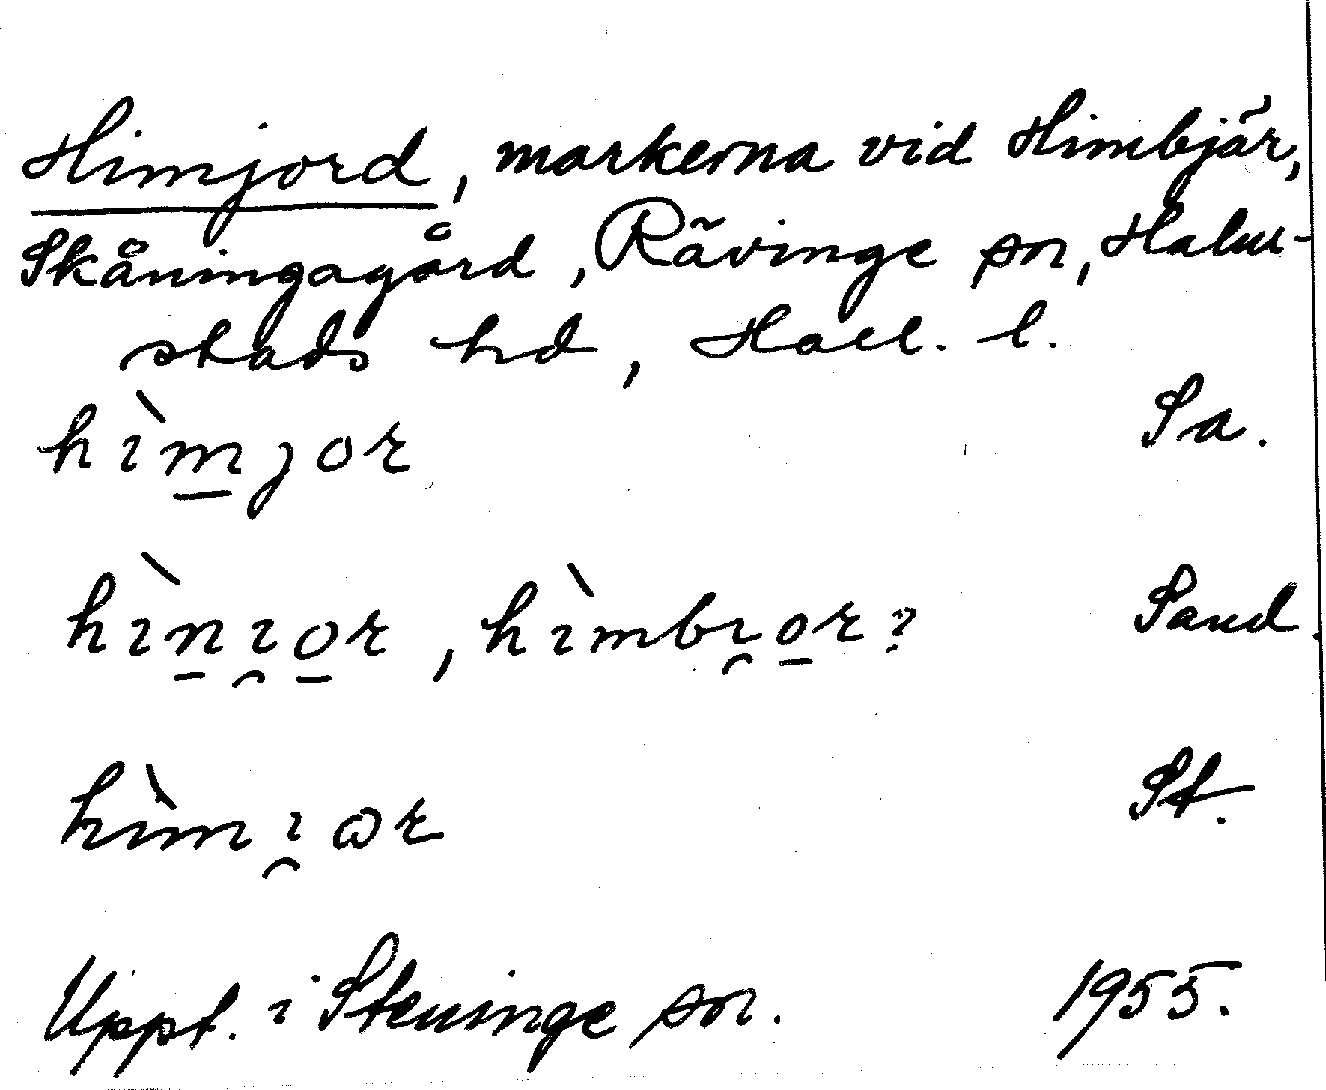 Himjord, markerna vid Himbjär,
Skåningagård, Rävinge sn, Halm-
stads hd, Hall. l.
hìm̱jor Sa.
hìṉı̯o̱r, hìmbı̯o̱r? Sand.
hìmı̯ɷr St.
Uppt. i Steninge sn. 1955.